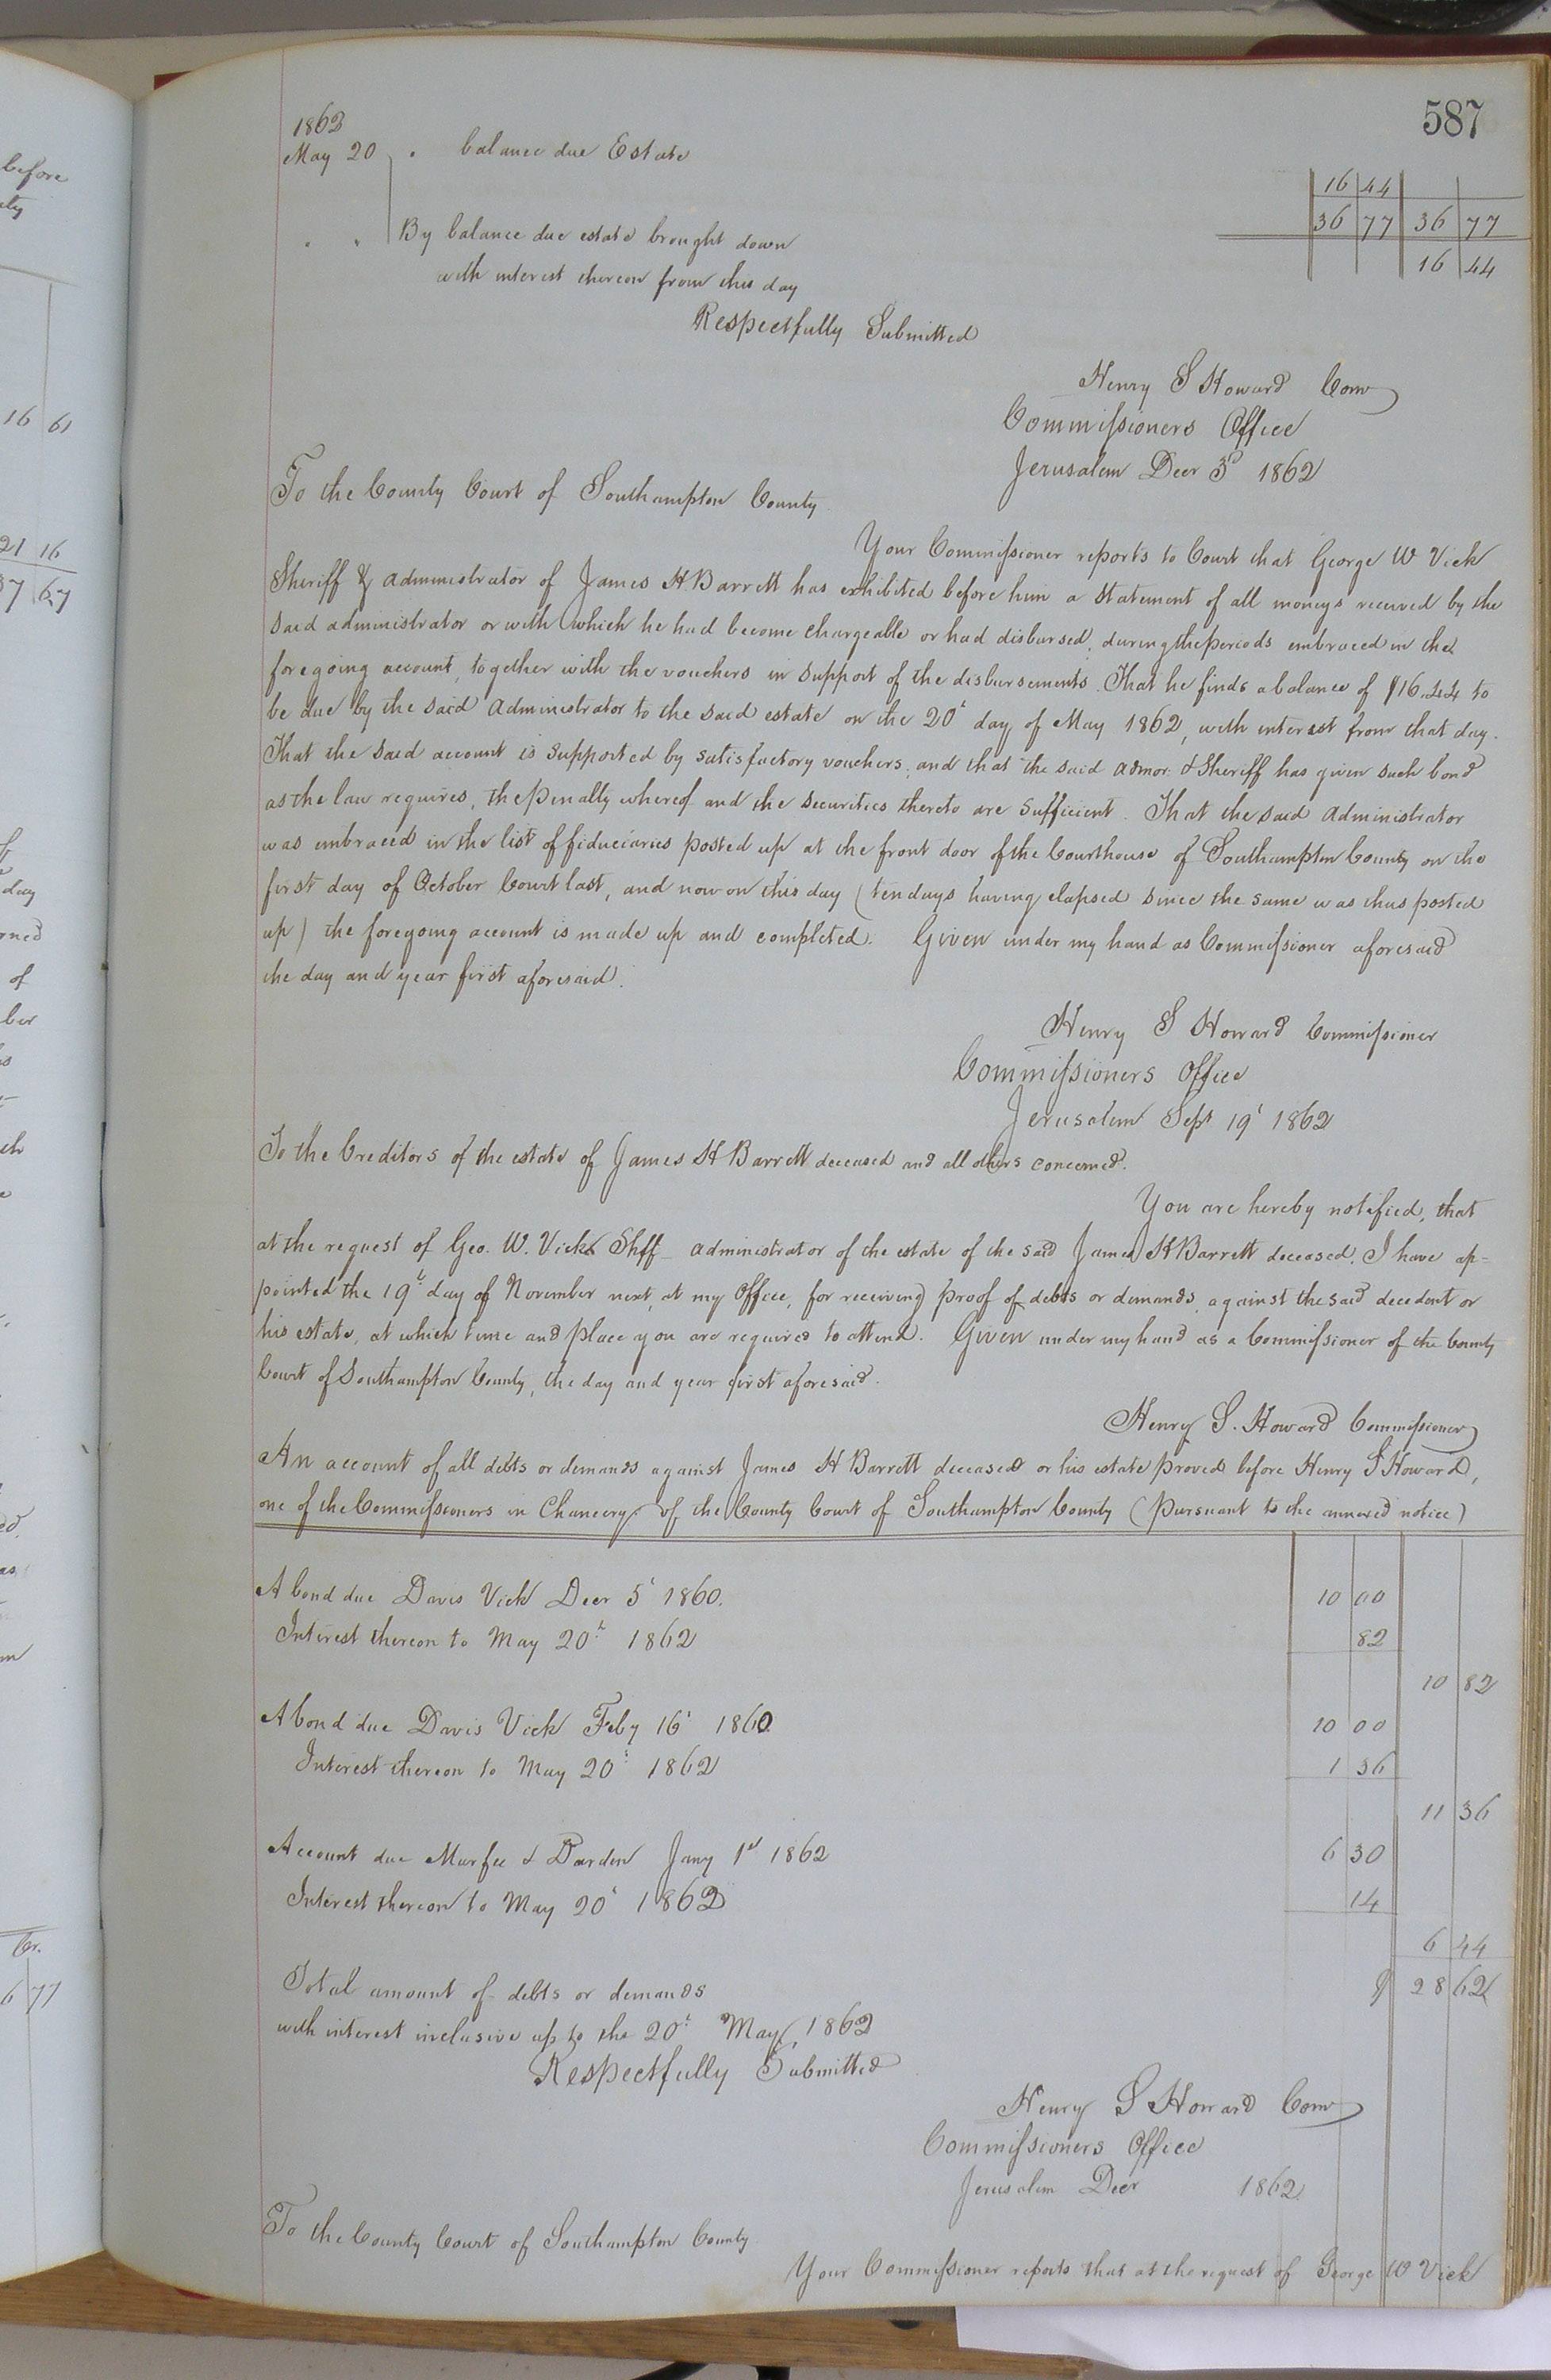 587
1862
May 20 " balance due Estate 16 44
36 77 36 77
" " By balance due estate brought down 16 44
with interest thereon from this day
Respectfully Submitted
Henry S Howard Com
Commissioners Office
Jerusalem Decr 3d 1862
To the County Court of Southampton County
Your Commissioner reports to Court that George W Vick
Sheriff & administrator of James H Barrett has exhibited before him a statement of all moneys received by the
said administrator or with which he had become chargeable or had disbursed, during the periods embraced in the
foregoing account, together with the vouchers in support of the disbursements. That he finds a balance of $16.44 to
be due by the said administrator to the said estate on the 20t day of May 1862, with interest from that day.
That the said account is supported by satisfactory vouchers, and that the said admor. & Sheriff has given such bond
as the law requires, the penalty whereof and the securities thereto are sufficient. That the said administrator
was embraced in the list of fiduciaries posted up at the front door of the Courthouse of Southampton County on the
first day of October Court last, and now on this day (ten days having elapsed since the same was thus posted
up) the foregoing account is made up and completed. Given under my hand as Commissioner aforesaid
the day and year first aforesaid.
Henry S Howard Commissioner
Commissioners Office
Jerusalem Sept 19t 1862
To the Creditors of the estate of James H Barrett deceased and all others concerned.
You are hereby notified, that
at the request of Geo. W. Vick Shff administrator of the estate of the said James H Barrett deceased. I have ap=
pointed the 19t day of November next, at my Office, for receiving proof of debts or demands, against the said decedent or
his estate, at which time and place you are required to attend. Given under my hand as a Commissioner of the County
Court of Southampton County, the day and year first aforesaid.
Henry S. Howard Commissioner
An account of all debts or demands against James H Barrett deceased or his estate proved before Henry S Howard,
one of the Commissioners in Chancery of the County Court of Southampton County (Pursuant to the annexed notice)
A bond due Davis Vick Decr 5t 1860. 10 00
Interest thereon to May 20t 1862 82
10 82
A bond due Davis Vick Feby 16t 1860 10 00
Interest thereon to May 20t 1862 1 36
11 36
Account due Murfee & Darden Jany 1st 1862 6 30
Interest thereon to May 20t 1862 14
6 44
Total amount of debts or demands $ 28 62
with interest inclusive up to the 20t May, 1862
Respectfully Submitted
Henry S Howard Com
Commissioners Office
Jerusalem Decr 1862
To the County Court of Southampton County
Your Commissioner reports that at the request of George W Vick